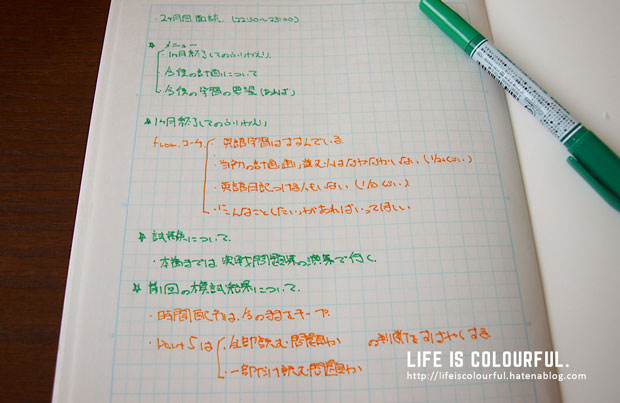 ・2ヶ月目面談 (22:30〜23:00)
★ メニュー
・1ヶ月終了してのふりかえり
・今後の計画について
・今後の学習の要望(あれば)
★1ヶ月終了してのふりかえり
from コーチ ・英語学習はすすんでいる
・当初の計画通り進む人はなかなかいない(1/20くらい)
・英語日記つける人もいない(1/20くらい)
・こんなことしたいってがあればいってほしい
★ 試験について
・本番までは実戦問題集の演習で行く。
★ 前回の模試結果について
・時間配分は、今のままをキープ
・Part 5 は ・全部読む問題か の判断をすばやくする
・一部だけ読む問題か
LIFE IS COLOURFUL.
http://lifeiscolourful.hatenablog.com/